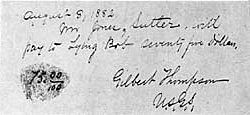 August 8, 1882
Mr. Jones, Sutler, will
pay to Lying Bob seventy five dollars.
75.00/100
Gilbert Thompson
U.S.G.S.